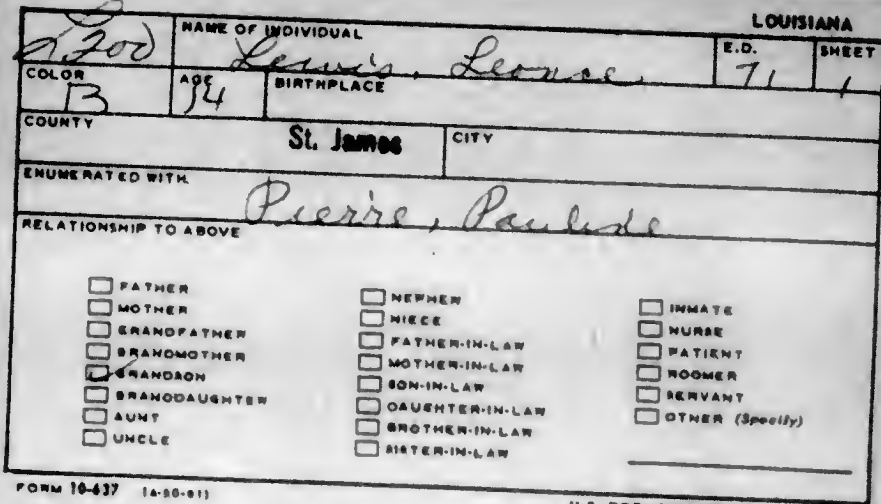 LOUISIANA
L200 NAME OF INDIVIDUAL Lewis, Leonce E.D. 71 SHEET 1
COLOR B AGE 14 BIRTHPLACE
COUNTY St. James CITY
ENUMERATED WITH Pierre, Pauline
RELATIONSHIP TO ABOVE
FATHER
MOTHER
GRANDFATHER
GRANDMOTHER
GRANDSON
GRANDDAUGHTER
AUNT
UNCLE
NEPHEW
NIECE
FATHER-IN-LAW
MOTHER-IN-LAW
SON-IN-LAW
DAUGHTER-IN-LAW
BROTHER-IN-LAW
SISTER-IN-LAW
INMATE
NURSE
PATIENT
ROOMER
SERVANT
OTHER (Specify)
FORM 10-637